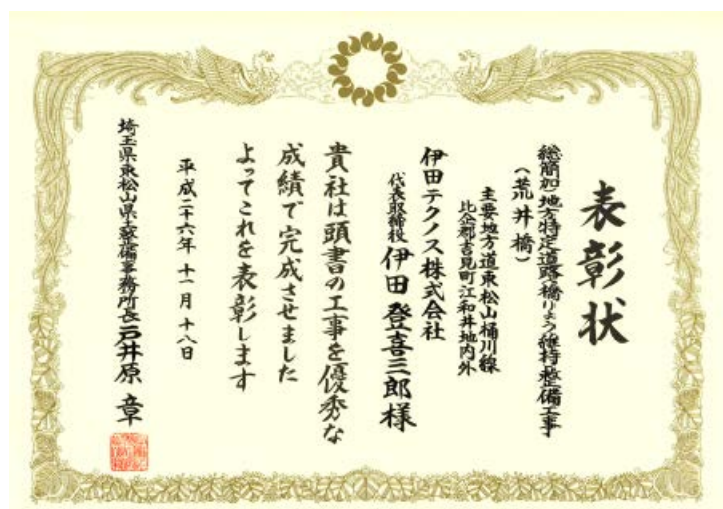 表彰状
総簡加)地方特定道路(橋りょう維持)整備工事
(荒井橋)
主要地方道東松山桶川線
比企郡吉見町江和井地内外
伊田テクノス株式会社
代表取締役 伊田登喜三郎様
貴社は頭書の工事を優秀な
成績で完成させました
よってこれを表彰します
平成二十六年十一月十八日
埼玉県東松山県土整備事務所長 石井原章